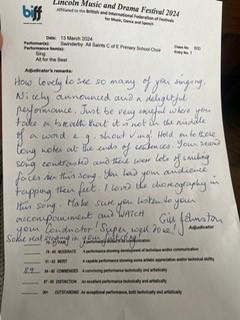 biff
Lincoln Music and Drama Festival 2024
Affiliated to the British and International Federation of Festivals
for Music, Dance and Speech
Date: 13 March 2024
Performer(s): Swinderby All Saints C of E Primary School Choir
Class No 800
Performance Item(s):
Entry No. 1
Sing
All for the Best
Adjudicator's remarks:
How lovely to see so many of you singing.
Nicely announced and a delightful
performance. Just be very careful where you
take a breath that it is not in the middle
of a word e.g. shout'ving. Hold on to those
long notes at the ends of sentences. Your second
song contrasted and there were lots of smiling
faces in this song. You had your audience
tapping their feet. I loved the choreography in
this song. Make sure you listen to your
accompaniment and watch
your conductor. Super well done!
Gill Johnston
Adjudicator
Some real singing in your
75-79 MODERATE A performance showing development of technique and/or communication
MERIT A capable performance showing some artistic appreciation and/or technical ability
89 84-86 COMMENDED A convincing performance technically and artistically
87-89 DISTINCTION An excellent performance technically and artistically
90+ OUTSTANDING An exceptional performance, both technically and artistically